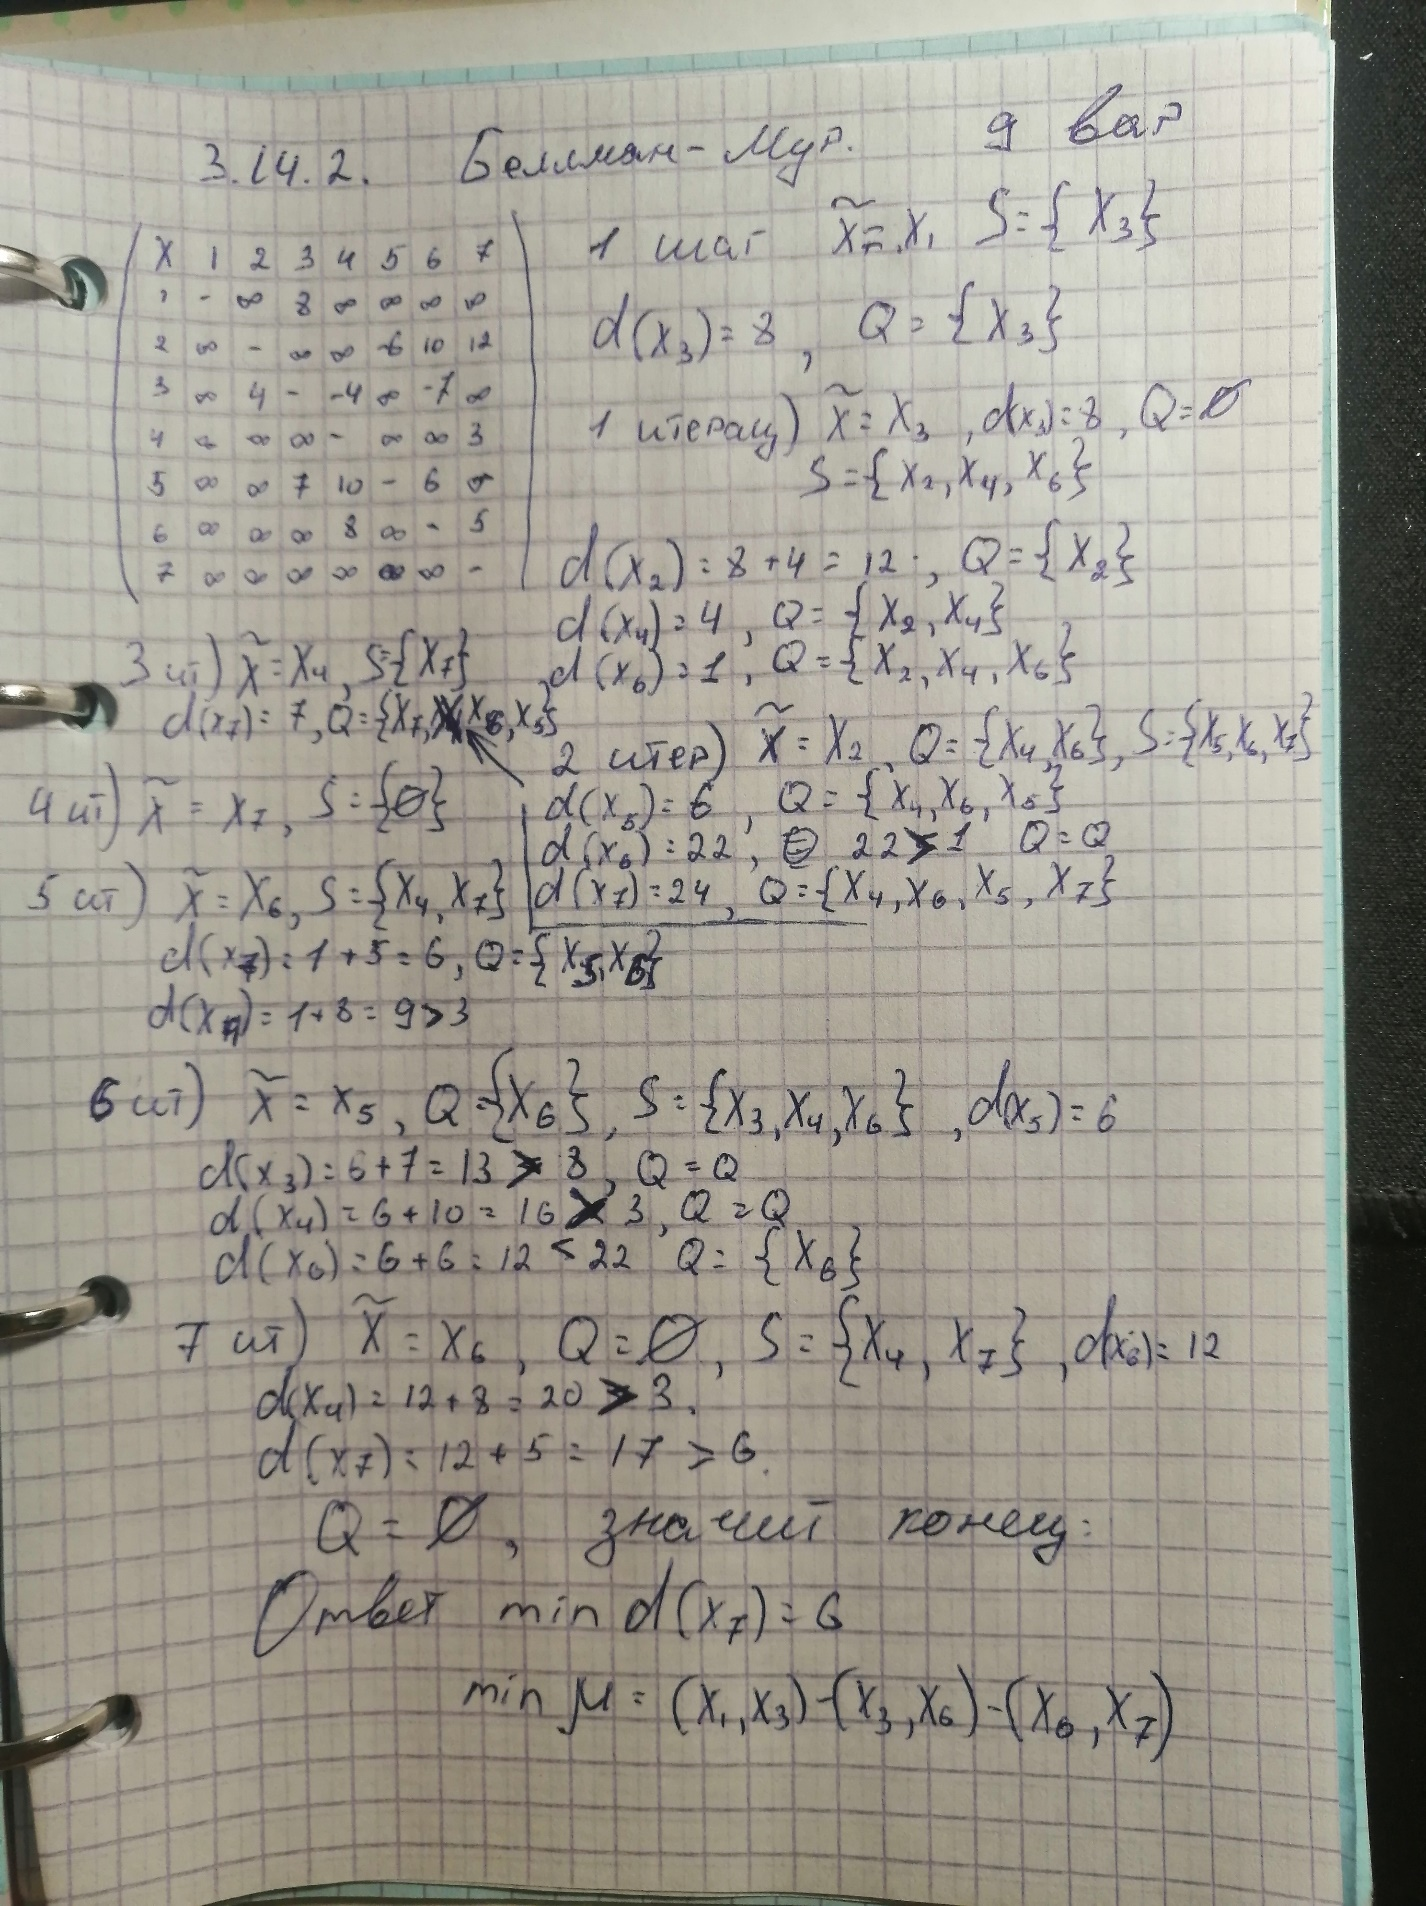 3.14.2. Беллман-Мур. 9 вар
X 1 2 3 4 5 6 7
1 - ∞ 8 ∞ ∞ ∞ ∞
2 ∞ - ∞ ∞ -6 10 12
3 ∞ 4 - -4 ∞ -7 ∞
4 ∞ ∞ ∞ - ∞ ∞ 3
5 ∞ ∞ 7 10 - 6 ∞
6 ∞ ∞ ∞ 8 ∞ - 5
7 ∞ ∞ ∞ ∞ ∞ ∞ -
1 шаг x̃ = x₁ S={X₃}
d(x₃)=8, Q={X₃}
1 итерац) x̃ = X₃, d(x₃)=8, Q=∅
S={X₂, X₄, X₆}
d(x₂)=8+4=12, Q={X₂}
d(x₄)=4, Q={X₂, X₄}
d(x₆)=1, Q={X₂, X₄, X₆}
2 итер) x̃ = X₂, Q={X₄, X₆}, S={X₅, X₆, X₇}
d(x₅)=6, Q={X₄, X₆, X₅}
d(x₆)=22, 22>1 Q=Q
d(x₇)=24, Q={X₄, X₆, X₅, X₇}
3 ит) x̃ = X₄, S={X₇}
d(x₇)=7, Q={X₇, X₆, X₅}
4 ит) x̃ = X₇, S={∅}
5 ит) x̃ = X₆, S={X₄, X₇}
d(x₇)=1+5=6, Q={X₅, X₆}
d(x₄)=1+8=9>3
6 ит) x̃ = x₅, Q={X₆}, S={X₃, X₄, X₆}, d(x₅)=6
d(x₃)=6+7=13 > 8, Q=Q
d(x₄)=6+10=16 > 3, Q=Q
d(x₆)=6+6=12 < 22 Q={X₆}
7 ит) x̃ = X₆, Q=∅, S={X₄, X₇}, d(x₆)=12
d(x₄)=12+8=20 > 3.
d(x₇)=12+5=17 > 6.
Q=∅, значит конец:
Ответ min d(x₇)=6
min μ=(X₁, X₃)-(X₃, X₆)-(X₆, X₇)